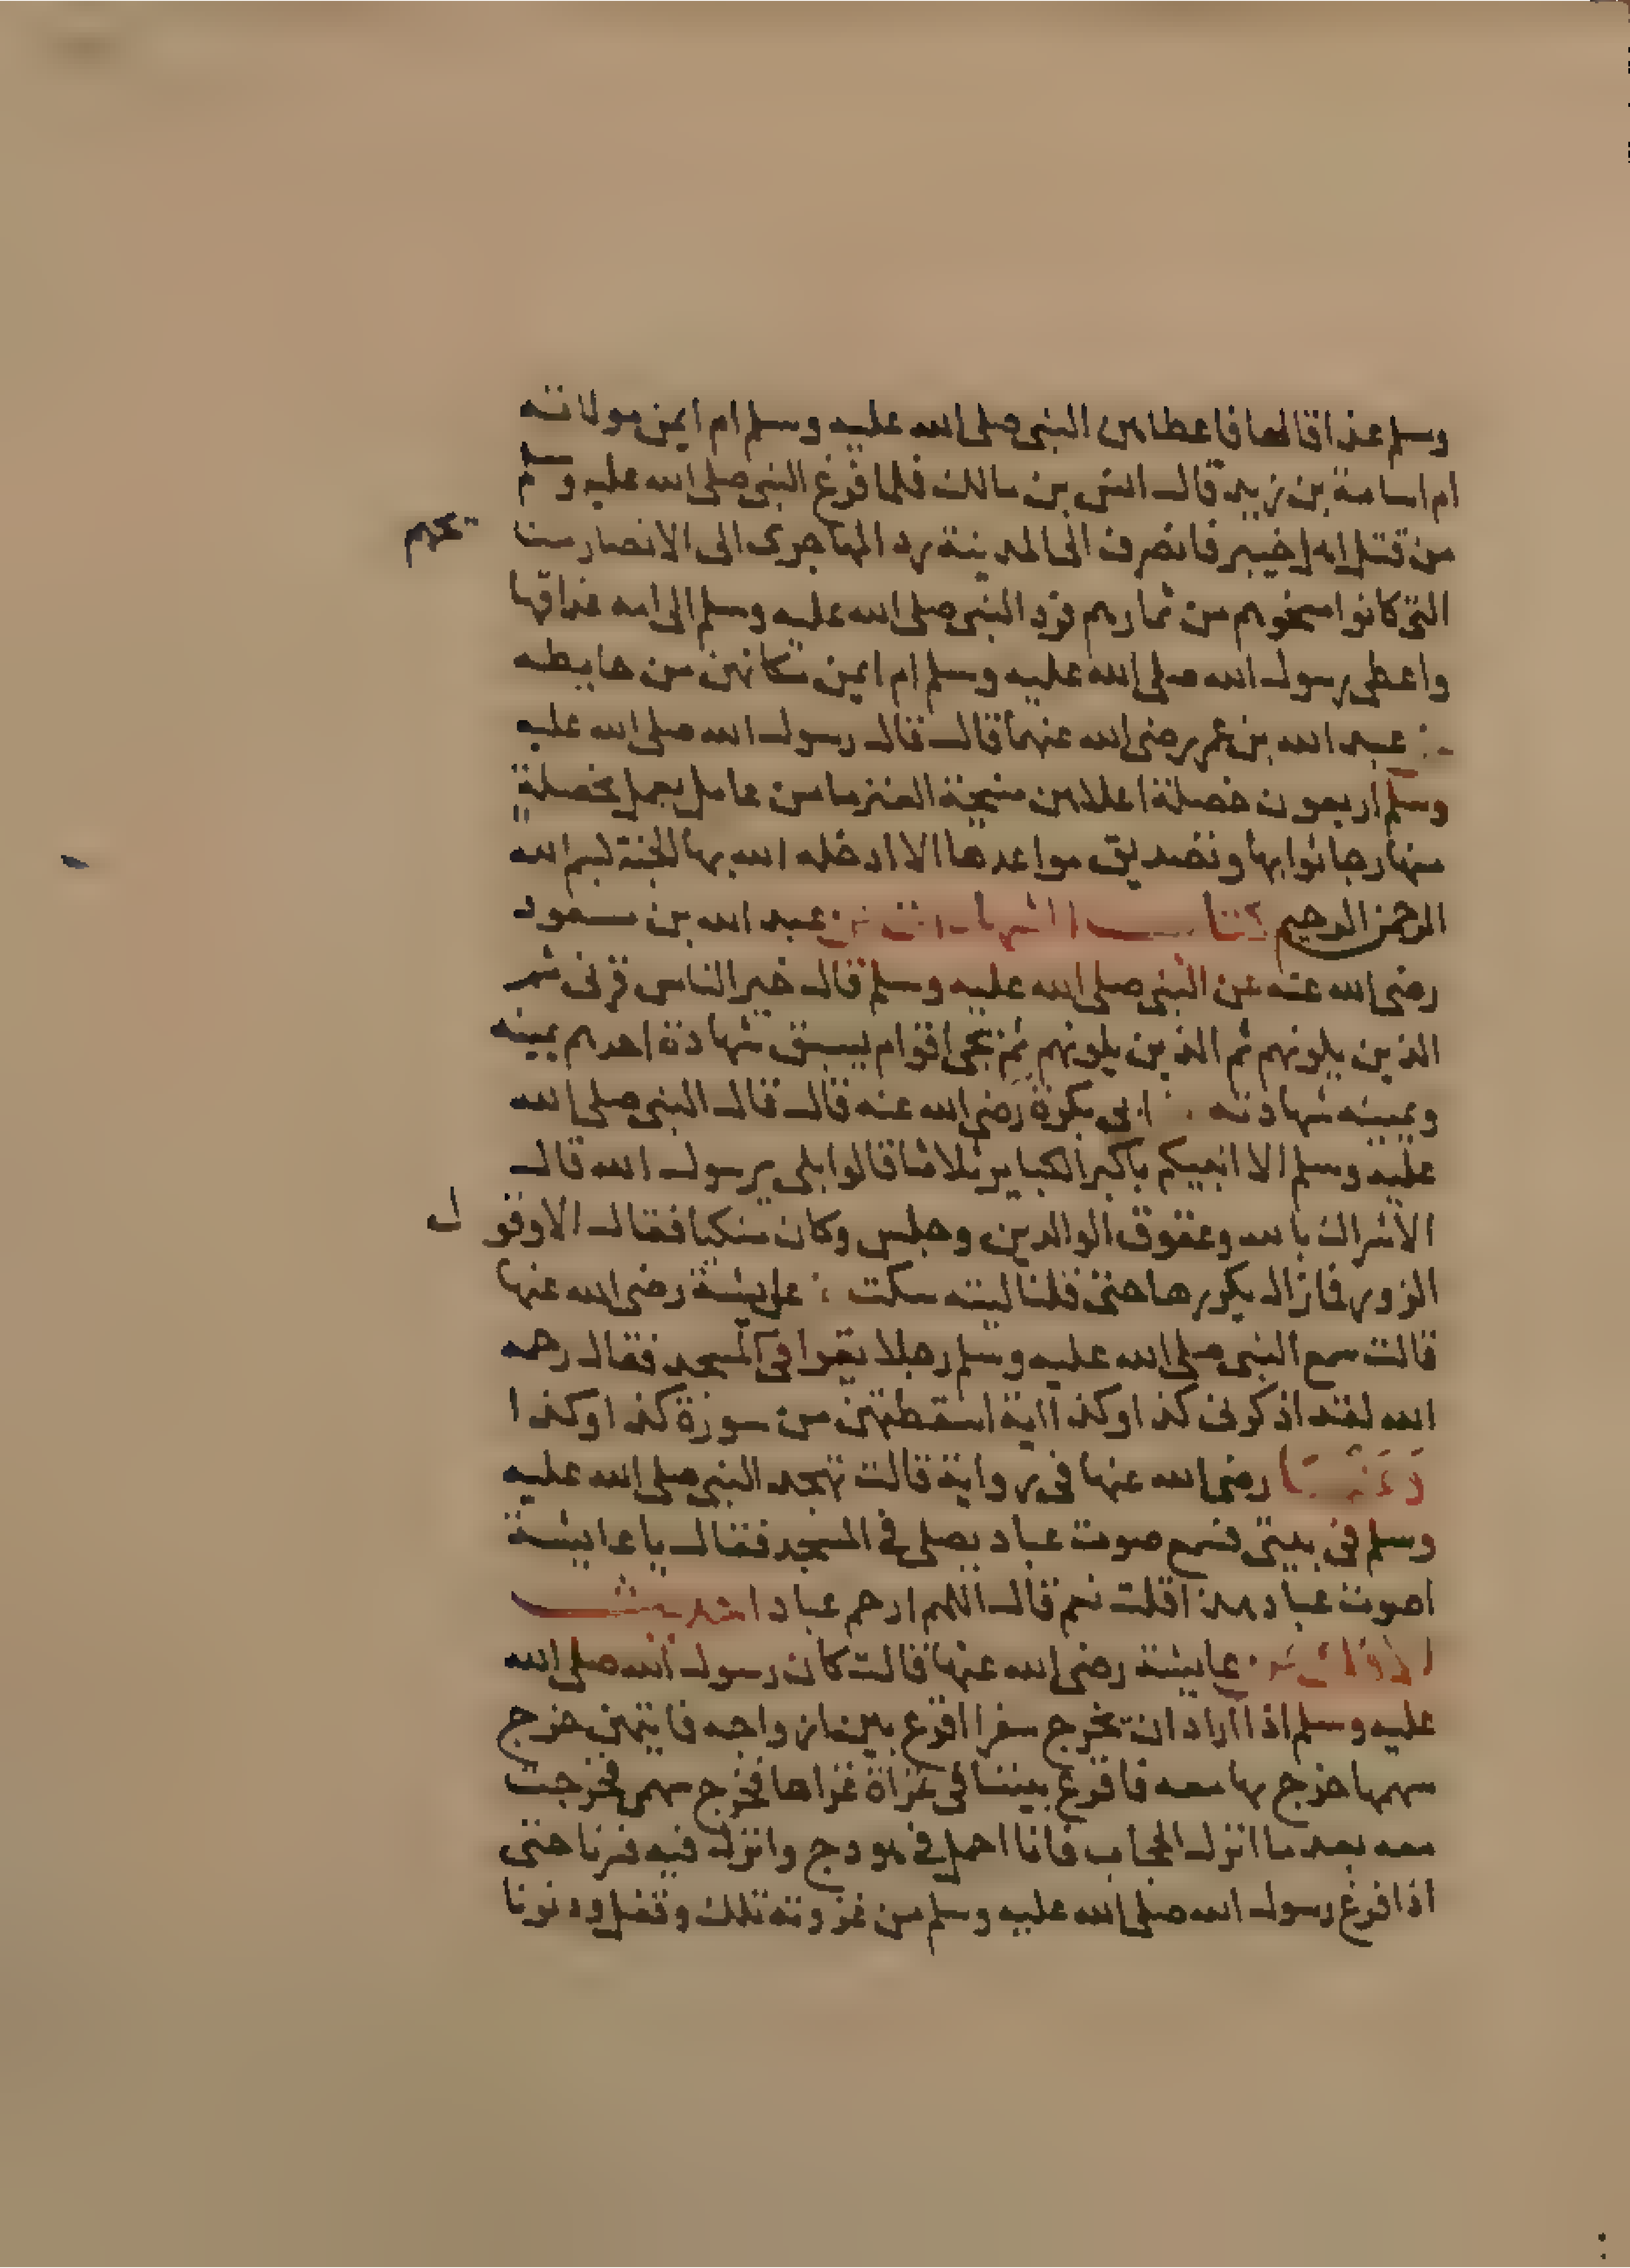 وسلم عذاقا لها فاعطاهن النبى صلى الله عليه وسلم ام ايمن مولاته
ام اسامة بن زيد قال انس بن مالك فلما فرغ النبى صلى الله عليه وسلم
من قتل اهل خيبر فانصرف الى المدينة رد المهاجرى الى الانصار منا ئحهم
التى كانوا منحوهم من ثمارهم فرد النبى صلى الله عليه وسلم الى امه عذاقها
واعطى رسول الله صلى الله عليه وسلم ام ايمن مكانهن من حايطه
عبد الله بن عمر رضى الله عنهما قال قال رسول الله صلى الله عليه
وسلم اربعون خصلة اعلاهن منيحة العنز ما من عامل يعمل بخصلة
منها رجا ثوابها وتصديق مواعدها الا ادخله الله بها الجنة بسم الله
الرحمن الرحيم كتاب الشهادات عبد الله بن مسعود
رضى الله عنه عن النبى صلى الله عليه وسلم قال خير الناس قرنى ثم
الذين يلونهم ثم الذين يلونهم ثم يجى اقوام يسبق شهادة احدهم يمينه
ويمينه شهادته ابى بكرة رضى الله عنه قال قال النبى صلى الله
عليه وسلم الا انبيكم باكبر الكباير ثلاثا قالوا بلى يرسول الله قال
الاشراك بالله وعقوق الوالدين وجلس وكان متكيا فقال الا وقو ل
الزور فما زال يكررها حتى قلنا ليته سكت عايشة رضى الله عنها
قالت سمع النبى صلى الله عليه وسلم رجلا يقرا فى المسجد فقال رحمه
الله لقد اذكرنى كذا وكذا اية اسقطتهن من سورة كذا وكذا
وعنها رضى الله عنها فى رواية قالت تهجد النبى صلى الله عليه
وسلم فى بيتى فسمع صوت عباد يصلى فى المسجد فقال يا عايشة
اصوت عباد هذا قلت نعم قال اللهم ارحم عبادا حديث
الافك عايشة رضى الله عنها قالت كان رسول الله صلى الله
عليه وسلم اذا اراد ان يخرج سفرا اقرع بين ازواجه فايتهن خرج
سهمها خرج بها معه فاقرع بيننا فى غزاة غزاها فخرج سهمى فخرجت
معه بعد ما انزل الحجاب فانا احمل فى هودج وانزل فيه فسرنا حتى
اذا فرغ رسول الله صلى الله عليه وسلم من غزوته تلك وقفل ودنونا